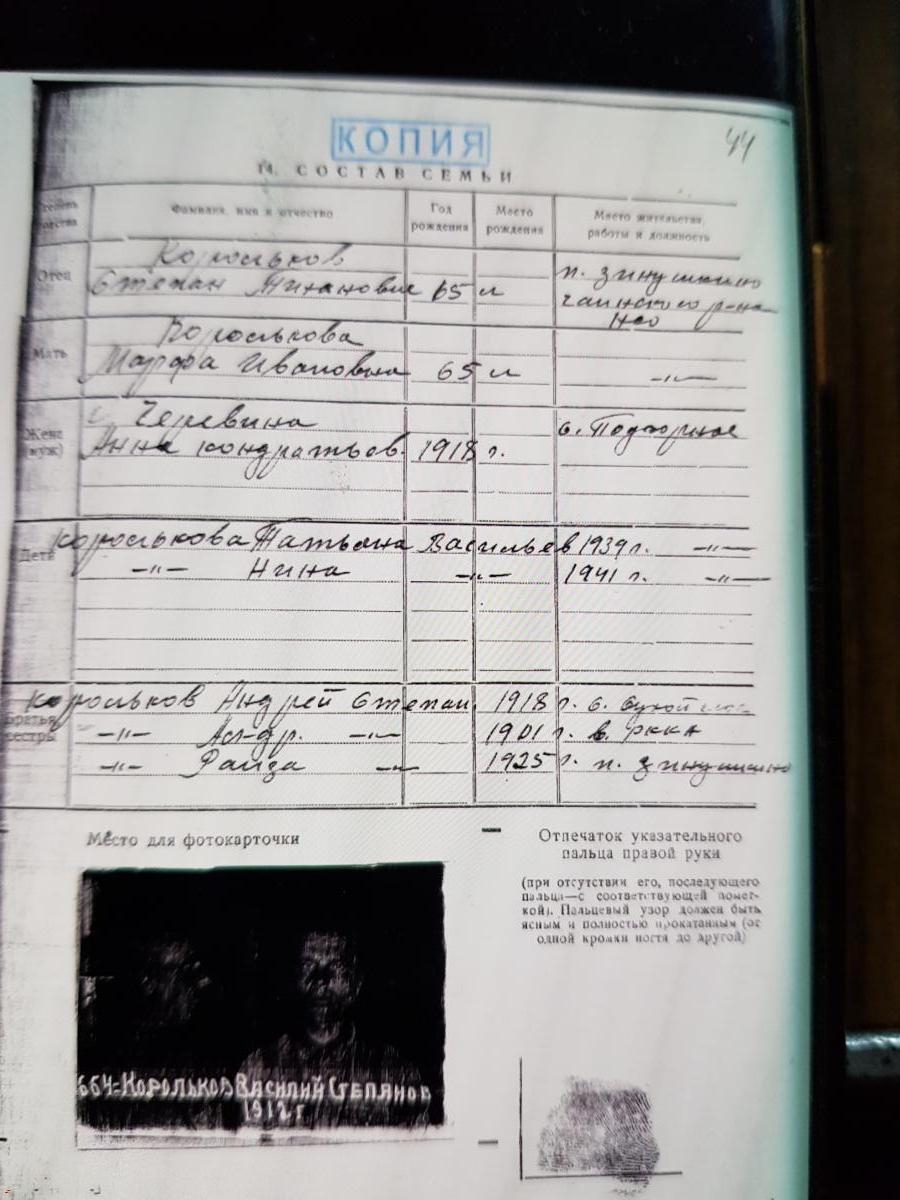 КОПИЯ
44
14. СОСТАВ СЕМЬИ
Степень родства
Фамилия, имя и отчество
Год рождения
Место рождения
Место жительства, работы и должность
Отец
Корольков
Степан Тиханович 65 л
п. Зинушкино
Чаинского р-на
НСО
Мать
Королькова
Марфа Ивановна 65 л
-"-
Жена (муж)
Черевина
Анна Кондратьев. 1918 г.
с. Подгорное
Дети
Королькова Татьяна Васильев 1939 г. -"-
-"- Нина -"- 1941 г. -"-
Братья, сестры
Корольков Андрей Степан. 1918 г. с. Сухой
-"- -"- 1901 г. в РККА
-"- Раида -"- 1925 г. п. Зинушкино
Место для фотокарточки
664-Корольков Василий Степанов
1912 г
Отпечаток указательного
пальца правой руки
(при отсутствии его, последующего
пальца—с соответствующей помет-
кой). Пальцевый узор должен быть
ясным и полностью прокатанным (от
одной кромки ногтя до другой)